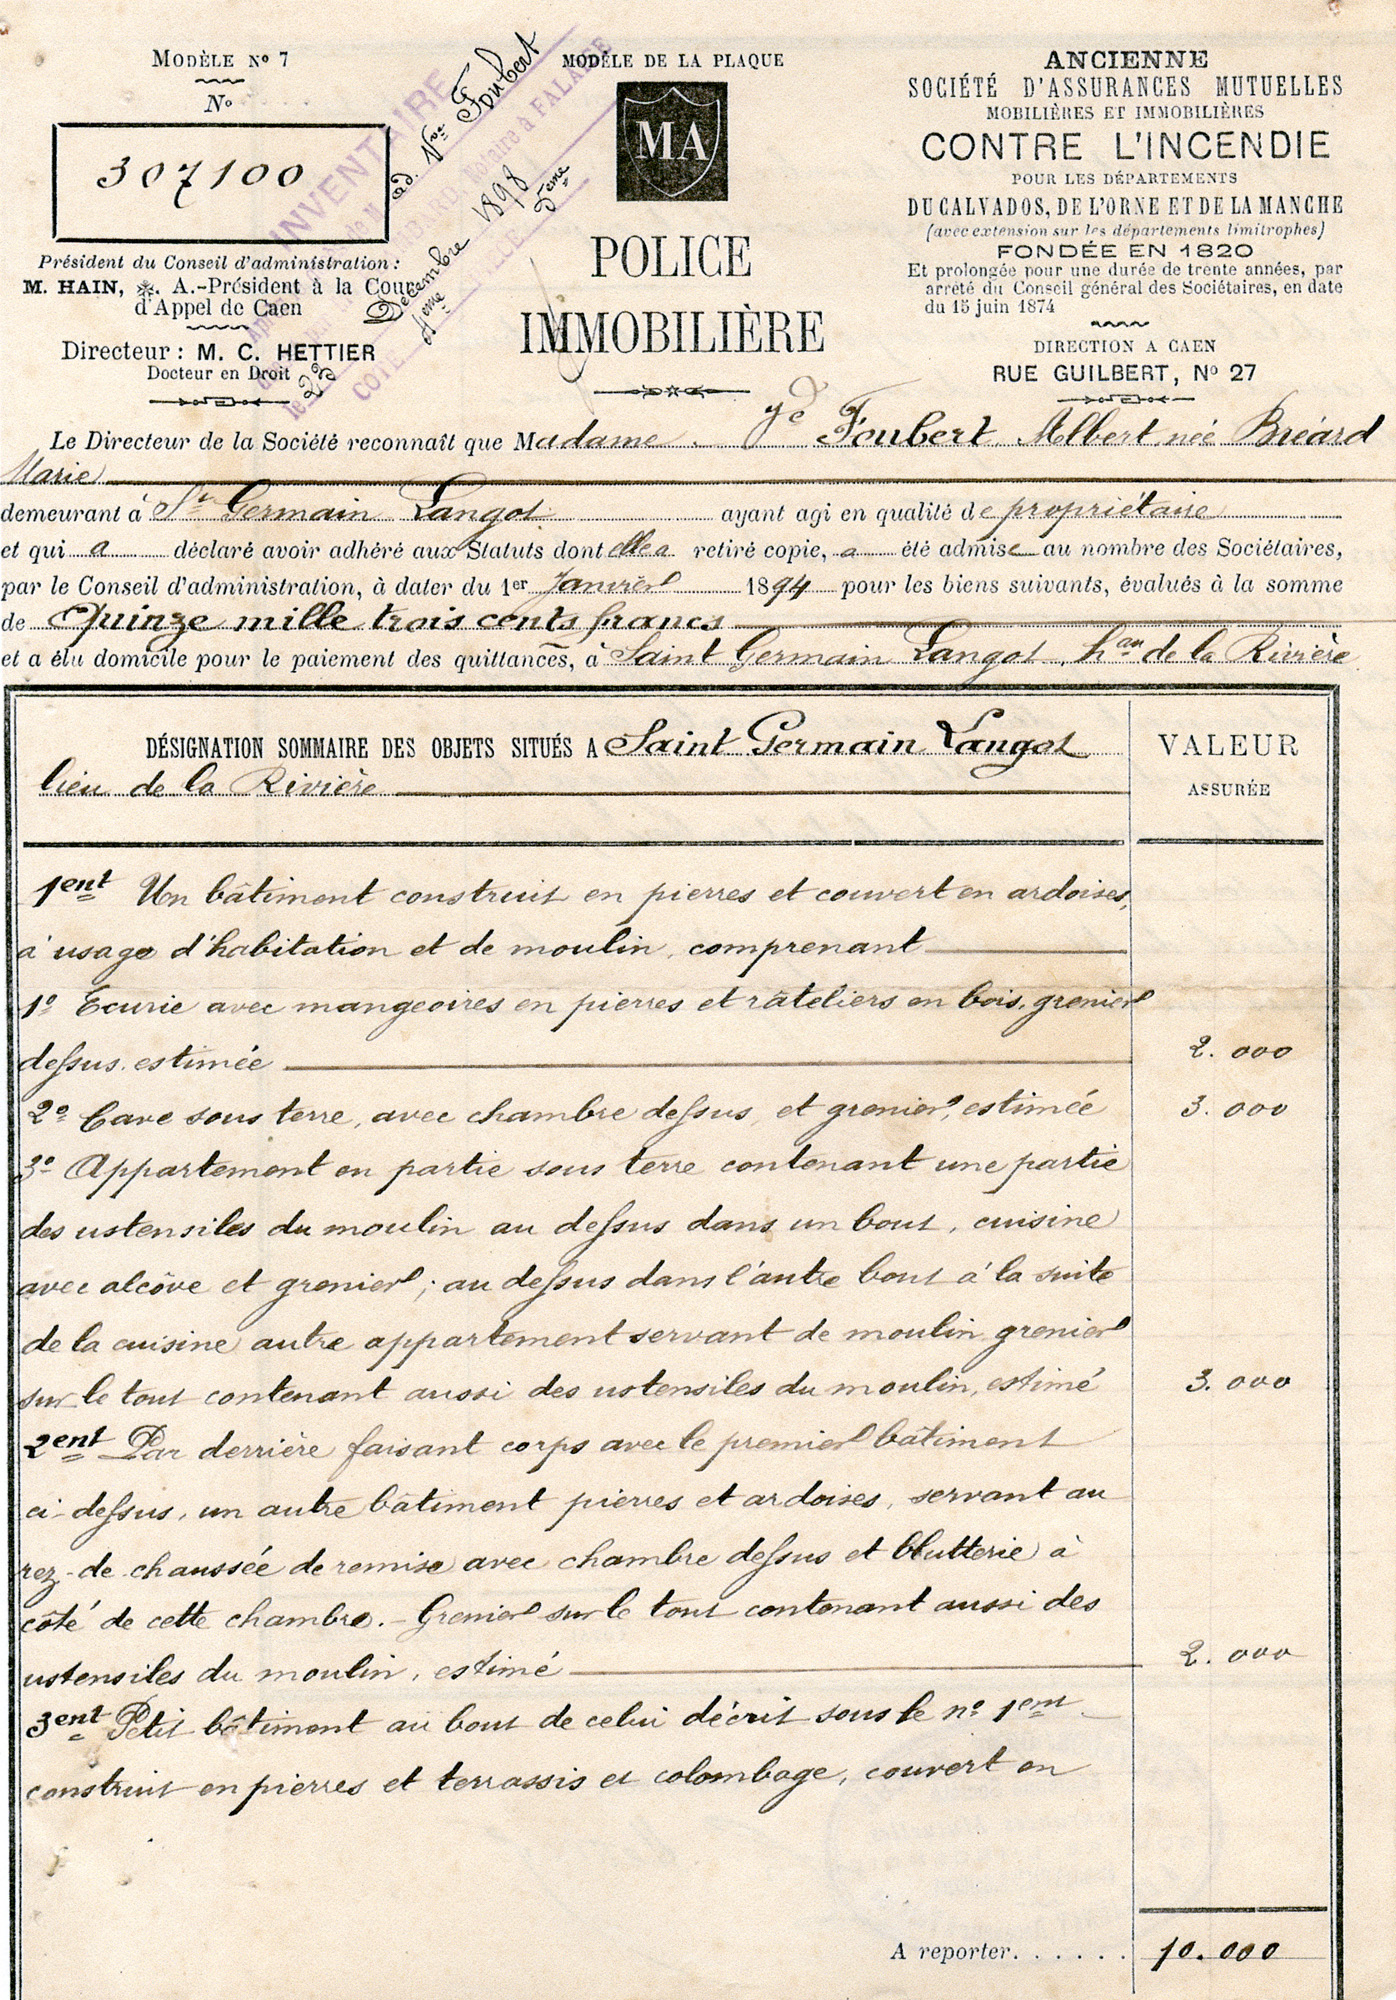 MODÈLE No 7
No
307100
Président du Conseil d'administration :
M. HAIN, ※. A.-Président à la Cour
d'Appel de Caen
Directeur : M. C. HETTIER
Docteur en Droit
INVENTAIRE
de M ad. Vve Foubert
Notaire à FALAISE
le 29 Décembre 1898
COTE 4eme PIÈCE 5eme
MODÈLE DE LA PLAQUE
MA
POLICE
IMMOBILIÈRE
ANCIENNE
SOCIÉTÉ D'ASSURANCES MUTUELLES
MOBILIÈRES ET IMMOBILIÈRES
CONTRE L'INCENDIE
POUR LES DÉPARTEMENTS
DU CALVADOS, DE L'ORNE ET DE LA MANCHE
(avec extension sur les départements limitrophes)
FONDÉE EN 1820
Et prolongée pour une durée de trente années, par
arrêté du Conseil général des Sociétaires, en date
du 15 juin 1874
DIRECTION A CAEN
RUE GUILBERT, No 27
Le Directeur de la Société reconnaît que Madame Foubert Albert née Bréard
Marie
demeurant à St Germain Langot ayant agi en qualité de propriétaire
et qui a déclaré avoir adhéré aux Statuts dont elle a retiré copie, a été admise au nombre des Sociétaires,
par le Conseil d'administration, à dater du 1er Janvier 1894 pour les biens suivants, évalués à la somme
de Quinze mille trois cents francs
et a élu domicile pour le paiement des quittances, à Saint Germain Langot, hau de la Rivière
DÉSIGNATION SOMMAIRE DES OBJETS SITUÉS A Saint Germain Langot
lieu de la Rivière
VALEUR
ASSURÉE
1ent Un bâtiment construit en pierres et couvert en ardoises,
à usage d'habitation et de moulin, comprenant
1o Ecurie avec mangeoires en pierres et râteliers en bois, grenier
dessus. estimée 2.000
2o Cave sous terre, avec chambre dessus, et grenier, estimée 3.000
3o Appartement en partie sous terre contenant une partie
des ustensiles du moulin au dessus dans un bout, cuisine
avec alcôve et grenier ; au dessus dans l'autre bout à la suite
de la cuisine autre appartement servant de moulin grenier
sur le tout contenant aussi des ustensiles du moulin, estimé 3.000
2ent Par derrière faisant corps avec le premier bâtiment
ci-dessus, un autre bâtiment pierres et ardoises, servant au
rez-de-chaussée de remise avec chambre dessus et blutterie à
côté de cette chambre. - Grenier sur le tout contenant aussi des
ustensiles du moulin, estimé 2.000
3ent Petit bâtiment au bout de celui décrit sous le no 1ent
construit en pierres et terrassis et colombage, couvert en
A reporter. . . . . . 10.000